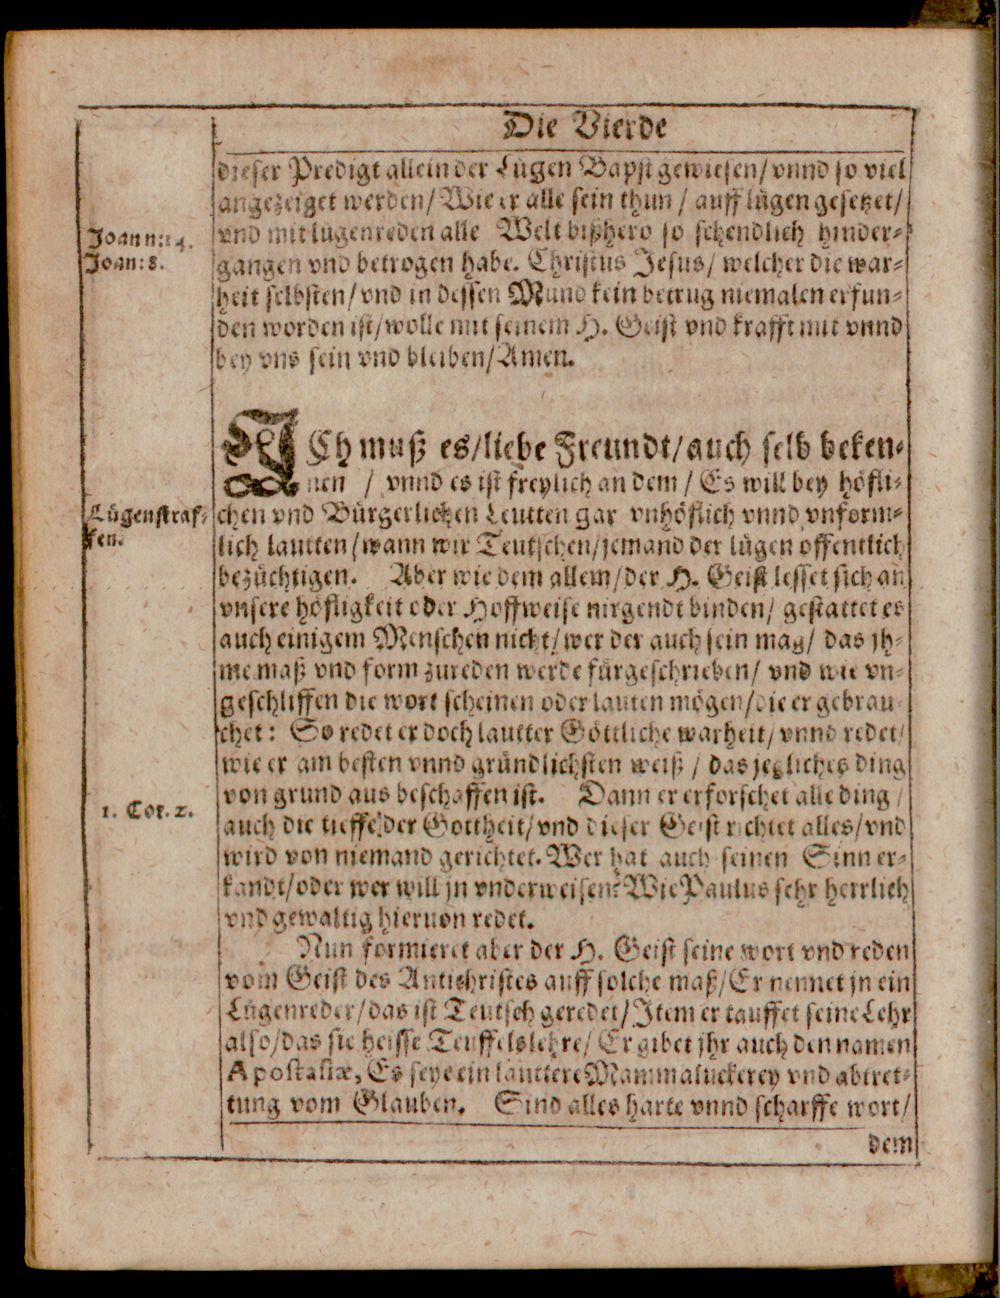 Die Vierde
dieser Predigt allein der Lügen Bapst gewiesen/ vnnd so viel
angezeiget werden/ Wie er alle sein thun / auff lügen gesetzet/
vnd mit lugenreden alle Welt bißhero so schendlich hinder-
gangen vnd betrogen habe. Christus Jesus/ welcher die war-
heit selbsten/ vnd in dessen Mund kein betrug niemalen erfun-
den worden ist/ wolle mit seinem H. Geist vnd krafft mit vnnd
bey vns sein vnd bleiben/ Amen.
Joann: 14.
Joan: 8.
ICh muß es/ liebe Freundt/ auch selb beken-
nen / vnnd es ist freylich an dem / Es will bey höfli-
chen vnd Bürgerlichen Leutten gar vnhöflich vnnd vnform-
lich lautten/ wann wir Teutschen/ jemand der lügen offentlich
bezüchtigen. Aber wie dem allem/ der H. Geist lesset sich an
vnsere höfligkeit oder Hoffweise nirgendt binden/ gestattet es
auch einigem Menschen nicht/ wer der auch sein mag/ das jh-
me maß vnd form zureden werde fürgeschrieben/ vnd wie vn-
geschliffen die wort scheinen oder lauten mögen/ die er gebrau-
chet: So redet er doch lautter Göttliche warheit/ vnnd redet/
wie er am besten vnnd gründlichsten weiß / das jegliches ding
von grund aus beschaffen ist. Dann er erforschet alle ding /
auch die tieffe der Gottheit/ vnd dieser Geist richtet alles/ vnd
wird von niemand gerichtet. Wer hat auch seinen Sinn er-
kandt/ oder wer will jn vnderweisen? Wie Paulus sehr herrlich
vnd gewaltig hieruon redet.
Lügenstraf-
fen.
1. Cor. 2.
Nun formieret aber der H. Geist seine wort vnd reden
vom Geist des Antichristes auff solche maß/ Er nennet jn ein
Lügenreder/ das ist Teutsch geredet/ Item er tauffet seine Lehr
also/ das sie heisse Teuffelslehre/ Er gibet jhr auch den namen
Apostasiæ, Es seye ein lauttere Mammaluckerey vnd abtret-
tung vom Glauben. Sind alles harte vnnd scharffe wort/
dem